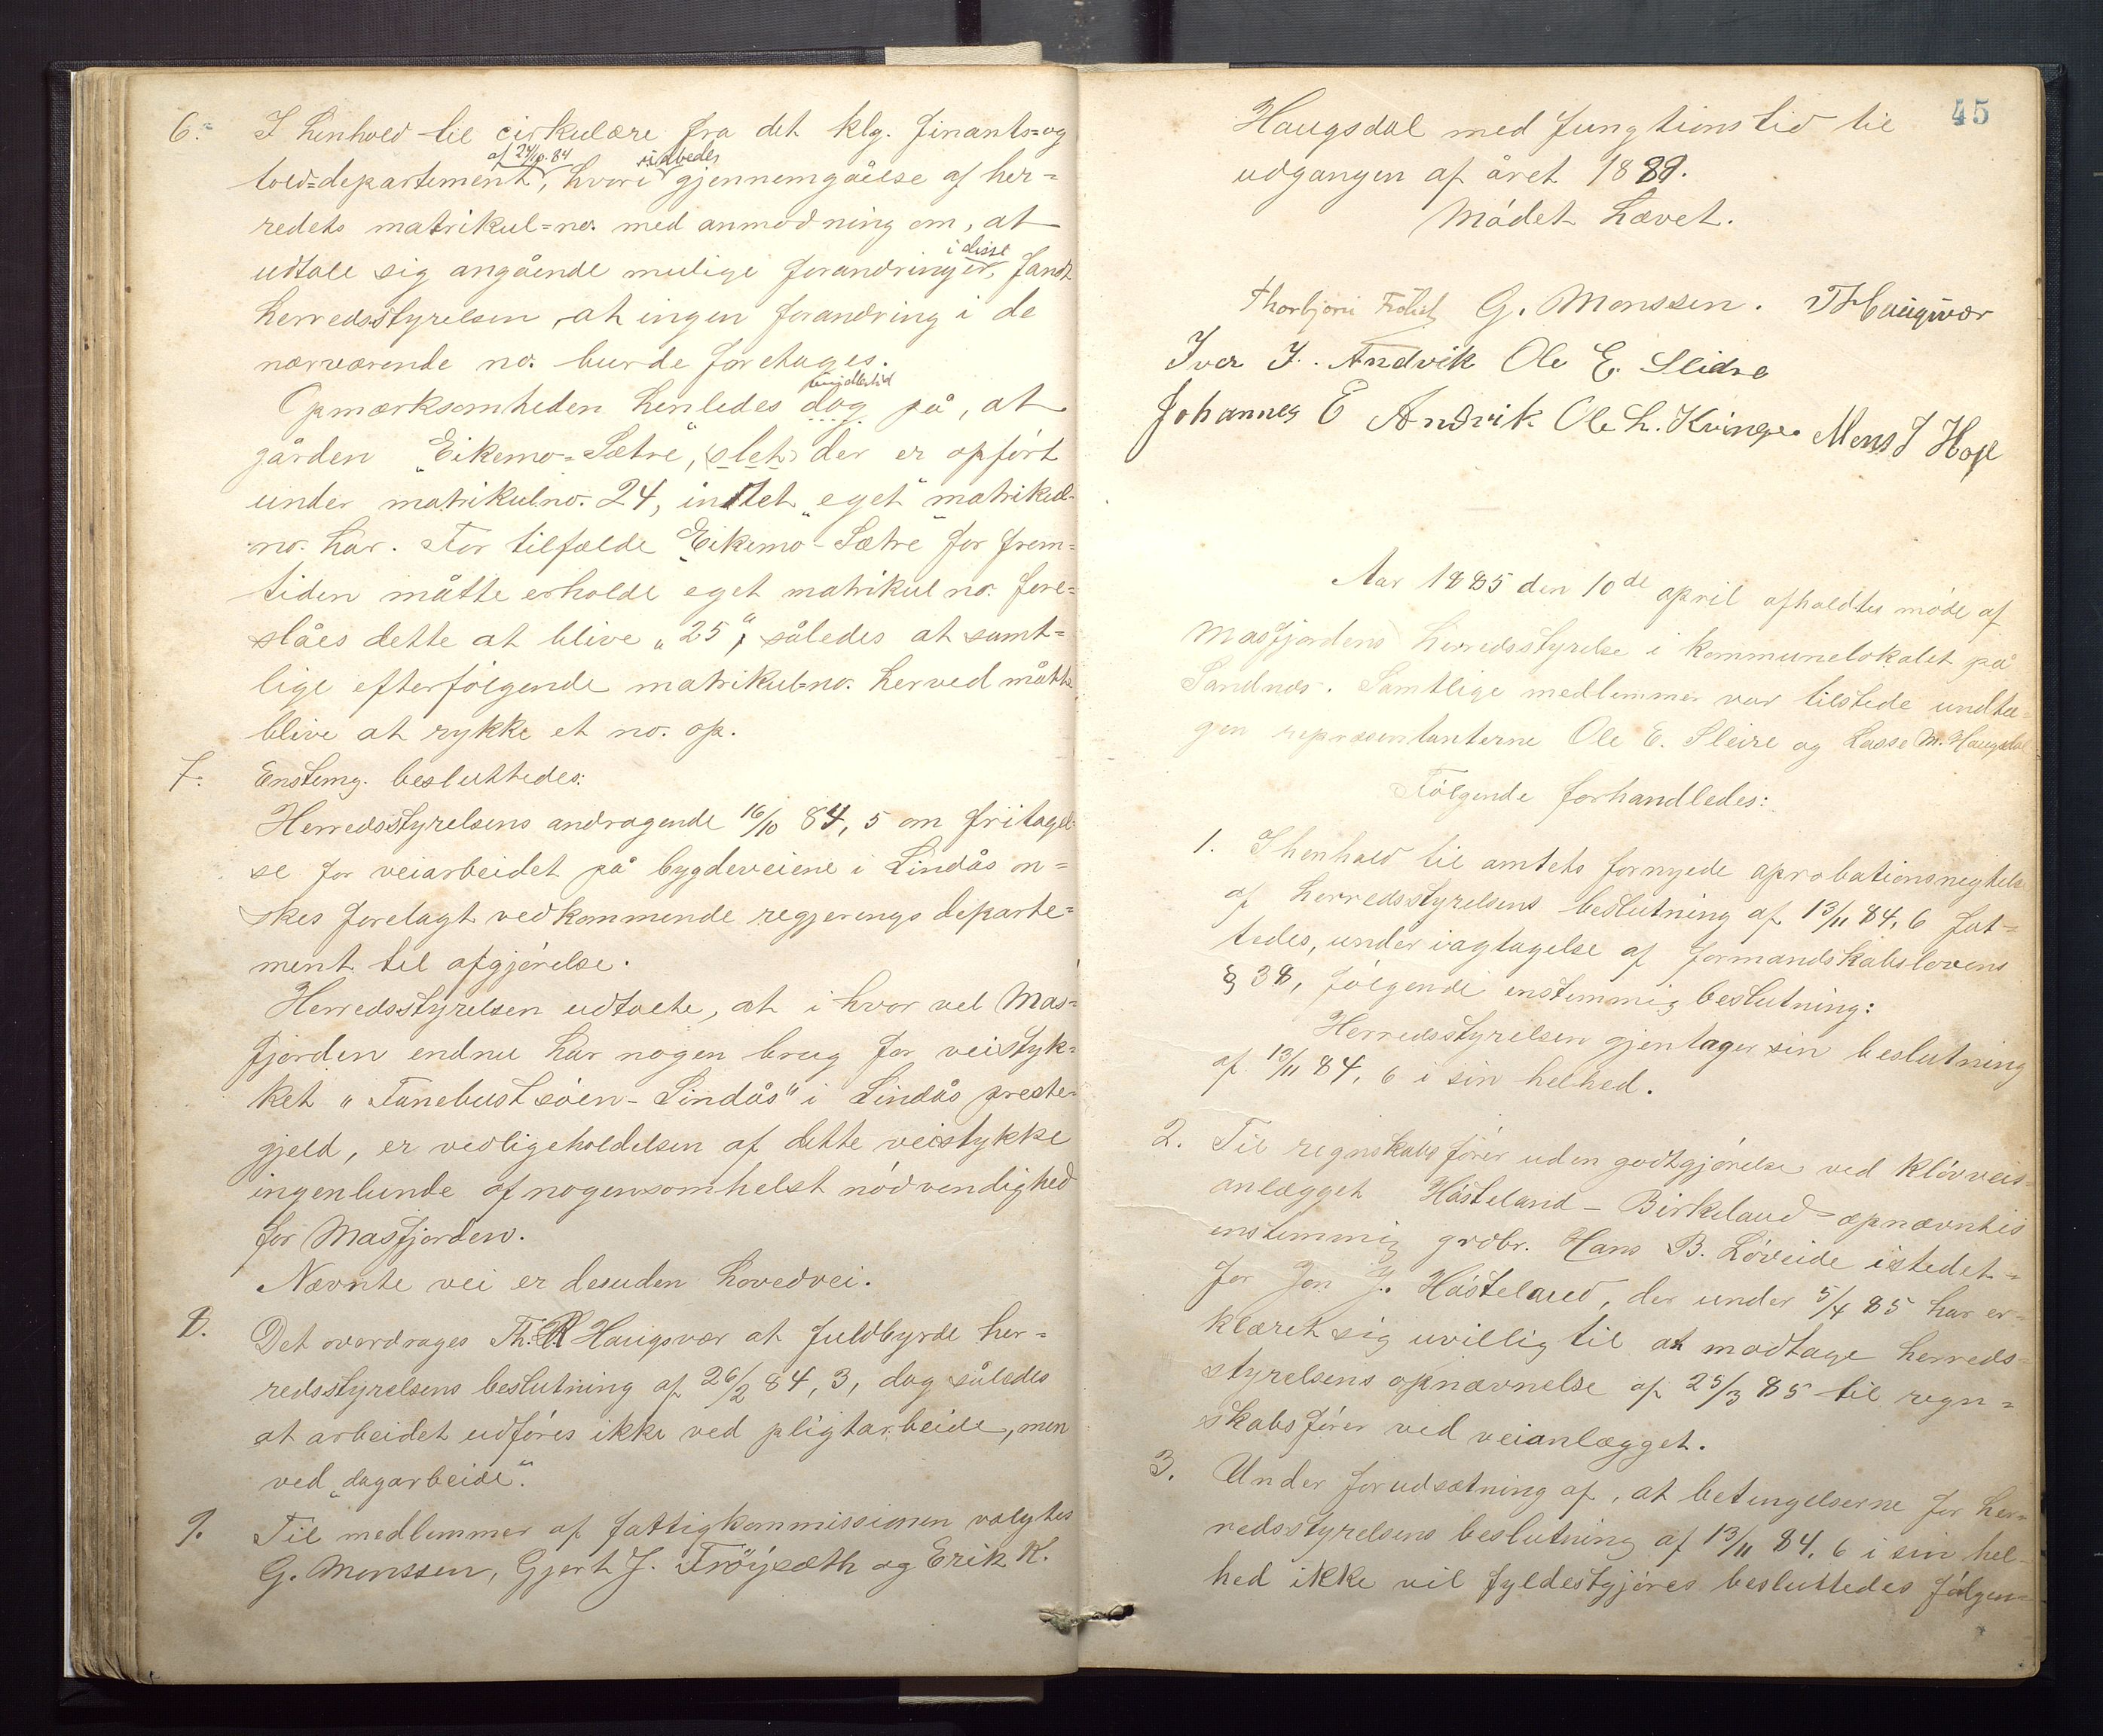 6. I henhold til cirkulære fra det klg. finants= og
told=departement, af 24/10.84 hvori udbedes gjennemgåelse af her=
redets matrikul=no. med anmodning om, at
udtale sig angående mulige forandringer i disse, fandt
herredsstyrelsen, at ingen forandring i de
nærværende no. burde foretages.
Opmærksomheden henledes dog imidlertid på, at
gården „Eikemo-Sætre", (slet) der er opført
under matrikulno. 24, intet „eget" matrikul-
no. har. For tilfælde „Eikemo-Sætre" for frem=
tiden måtte erholde eget matrikul no. fore=
slåes dette at blive „25", således at samt=
lige efterfølgende matrikul=no. herved måtte
blive at rykke et no. op.
7. Enstemg. besluttedes:
Herredsstyrelsens andragende 16/10 84, 5 om fritagel-
se for veiarbeidet på bygdeveiene i Lindås øn=
skes forelagt vedkommende regjerings departe=
ment til afgjørelse.
Herredsstyrelsen udtalte, at i hvor vel Mas=
fjorden endnu har nogen brug for veistyk=
ket „Fanebustsøen-Lindås" i Lindås preste-
gjeld, er vedligeholdelsen af dette veistykke
ingenlunde af nogensomhelst nødvendighed
for Masfjorden.
Nævnte vei er desuden hovedvei.
8. Det overdrages Th. R Haugsvær at fuldbyrde her=
redsstyrelsens beslutning af 26/2 84, 3, dog således
at arbeidet udføres ikke ved pligtarbeide, men
ved „dagarbeide".
9. Til medlemmer af fattigkommissionen valgtes
G. Monssen, Gjert J. Frøysæth og Erik K.
45
Haugsdal med fungtionstid til
udgangen af året 1889.
Mødet hævet.
Thorbjørn Frøiset G. Monssen. THaugsvær
Iver I. Andvik Ole E. Sleire
Johannes E Andvik Ole L. Kvinge Mons J Hope
Aar 1885 den 10de april afholdtes møde af
Masfjordens herredsstyrelse i kommunelokalet på
Sandnæs. Samtlige medlemmer var tilstede undta-
gen repræsentanterne Ole E. Sleire og Lasse M. Haugsdal
Følgende forhandledes:
1. I henhold til amtets fornyede aprobationsnegtelse
af herredsstyrelsens beslutning af 13/11 84, 6 fat=
tedes, under iagtagelse af formandskabslovens
§ 38, følgende enstemmig beslutning:
Herredsstyrelsen gjentager sin beslutning
af 13/11 84, 6 i sin helhed.
2. Til regnskabsfører uden godtgjørelse ved kløvveis-
anlægget Håsteland - Birkeland opnævntes
enstemmig grdbr. Hans B. Løveide istedet=
for Jon J. Håsteland, der under 5/4 85 har er-
klæret sig uvillig til at modtage herreds-
styrelsens opnævnelse af 25/3 85 til regn=
skabsfører ved veianlægget.
3. Under forudsætning af, at betingelserne for her=
redsstyrelsens beslutning af 13/11 84, 6 i sin hel-
hed ikke vil fyldestgjøres besluttedes følgen=